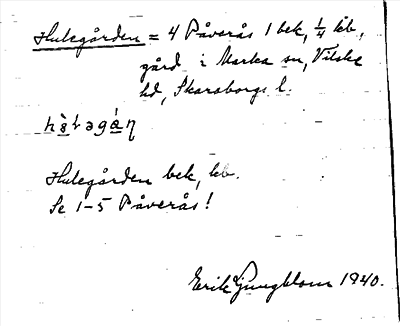 Hulegården = 4 Påverås 1 bek, 1/4 kb,
gård i Marka sn, Vilske
hd, Skaraborgs l.
Hulegården bek, kb.
Se 1–5 Påverås!
Erik Ljungblom 1940.